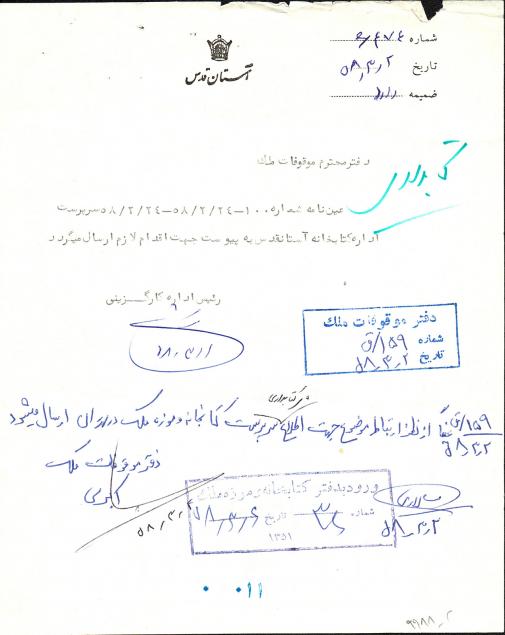 آستان قدس
شماره
تاریخ ۵۸٫۳٫۲
ضمیمه دارد
دفتر محترم موقوفات ملک
عین نامه شماره ۱۰۰-۵۸/۲/۲۴-۵۸/۲/۲۴ سرپرست
اداره کتابخانه آستانقدس به پیوست جهت اقدام لازم ارسال میگردد
رئیس اداره کارگزینی
دفتر موقوفات ملک
شماره ۱۵۹/ق
تاریخ ۵۸٫۳٫۲
۱۵۹/ق
۵۸٫۳٫۲
از نظر ارتباط موضوع جهت اطلاع سرپرست کتابخانه و موزه ملک در تهران ارسال میشود
دفتر موقوفات ملک
ورود بدفتر کتابخانه و موزه ملک
شماره ۳۶
تاریخ ۵۸٫۳٫۶
۱۳۵۱
۵۸٫۳٫۲
۰۱۱